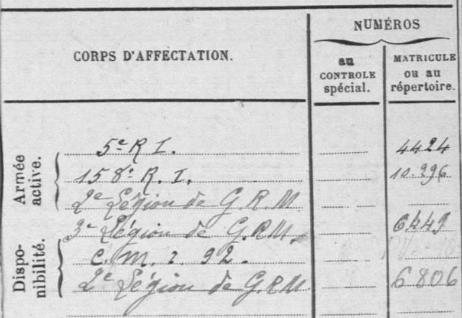 NUMÉROS
CORPS D'AFFECTATION.
au CONTROLE spécial.
MATRICULE ou au répertoire.
Armée active.
5e R I. 4424
158e R. I. 10.296
2e Légion de G.R.M
3e Légion de G.R.M. 6449
Dispo-nibilité.
C. M. 2. 92.
2e Légion de G.R.M 6806